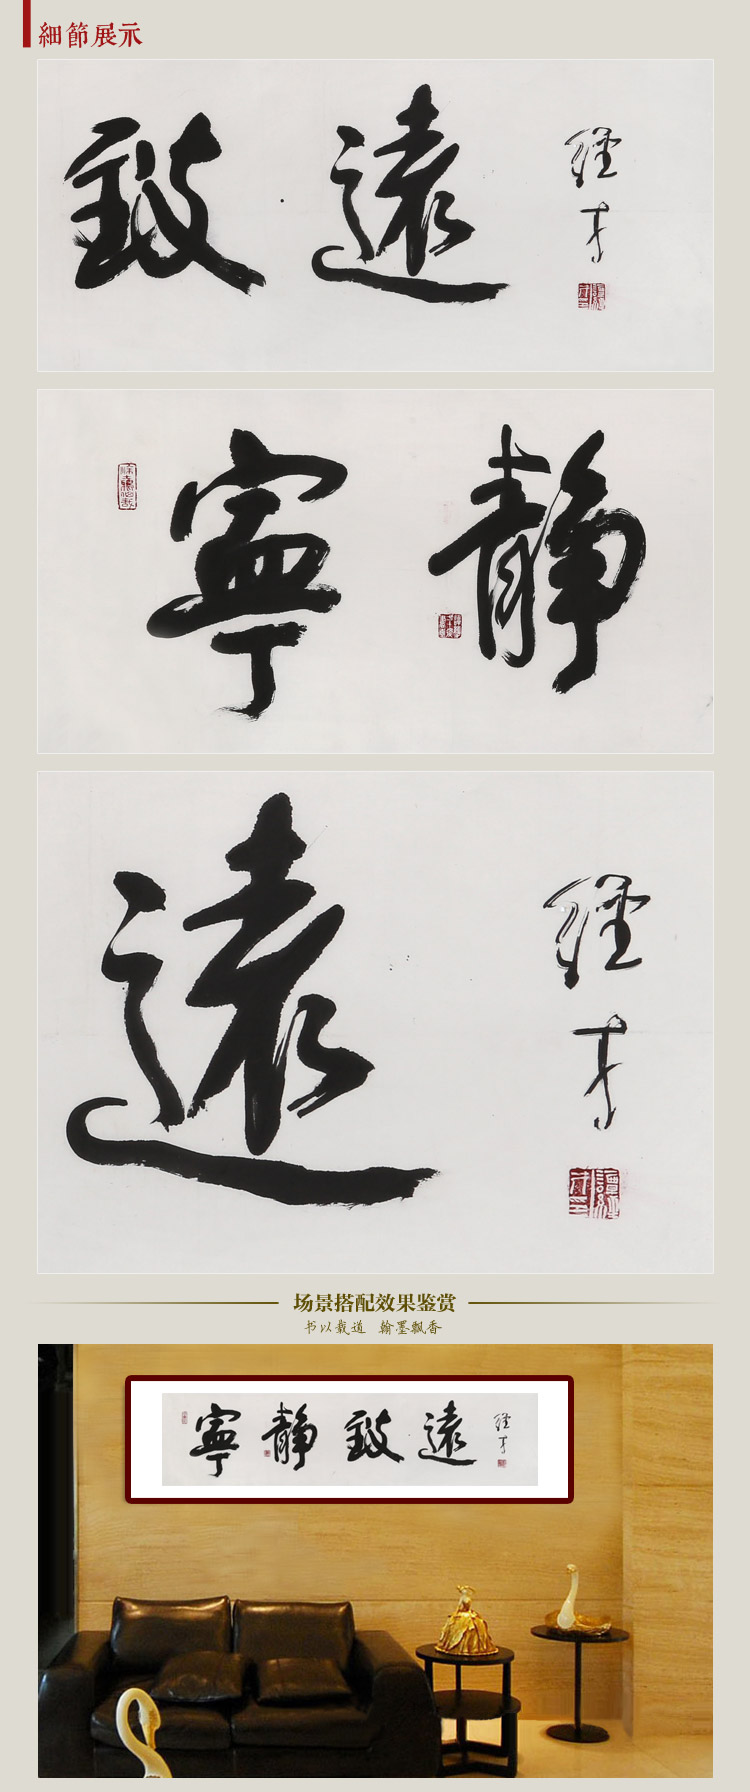 細節展示
致遠
經才
寧靜
遠
經才
场景搭配效果鉴赏
书以载道 翰墨飘香
寧靜致遠
經才